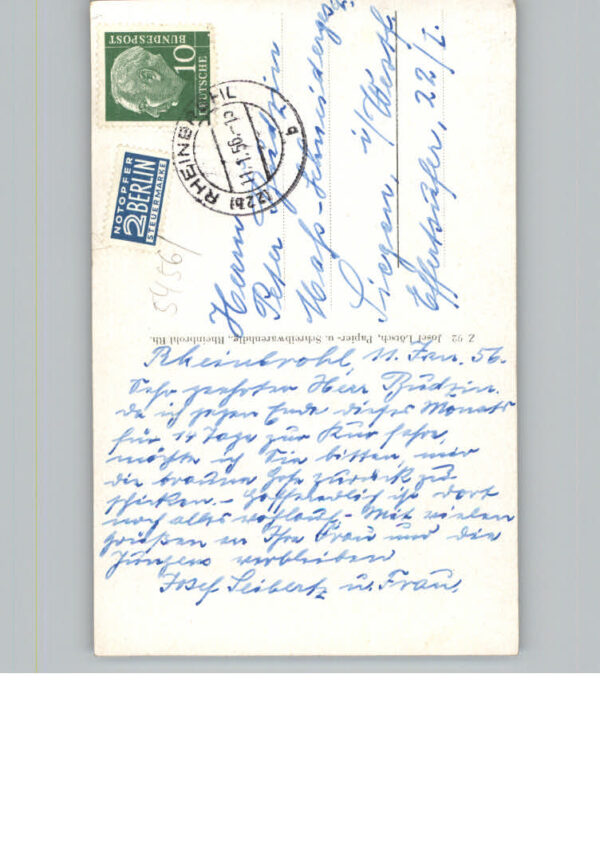 DEUTSCHE
BUNDESPOST
10
NOTOPFER
2 BERLIN
STEUERMARKE
RHEINBROHL
(22b)
11.1.56.-19
b
5456/
Herrn
Peter Büdzin
Maß-Schneidergesch.
Siegen, i/Westf.
Effertsufer, 22/I.
Z 92 Josef Lötsch, Papier- u. Schreibwarenhdlg., Rheinbrohl Rh.
Rheinbrohl, 11. Jan. 56.
Sehr geehrter Herr Büdzin.
da ich gegen Ende dieses Monats
für 14 Tage zur Kur fahre,
möchte ich Sie bitten, mir
die braune Hose zurück zu
schicken. - Hoffendlich ist dort
noch alles wohlauf - Mit vielen
Grüßen an Ihre Frau und die
Jüngens verbleiben
Josef Seibertz u. Frau.